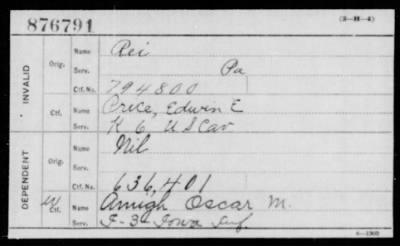 876791
(3-H-4)
INVALID
Orig.
Name Rei
Serv. Pa
Ctf. No. 794800
Ctf.
Name Crice, Edwin E
Serv. K 6 U S Cav
DEPENDENT
Orig.
Name Nil
Serv.
Ctf. No. 636,401
Ctf.
Name Amigh Oscar M.
Serv. F-3-Iowa Inf.